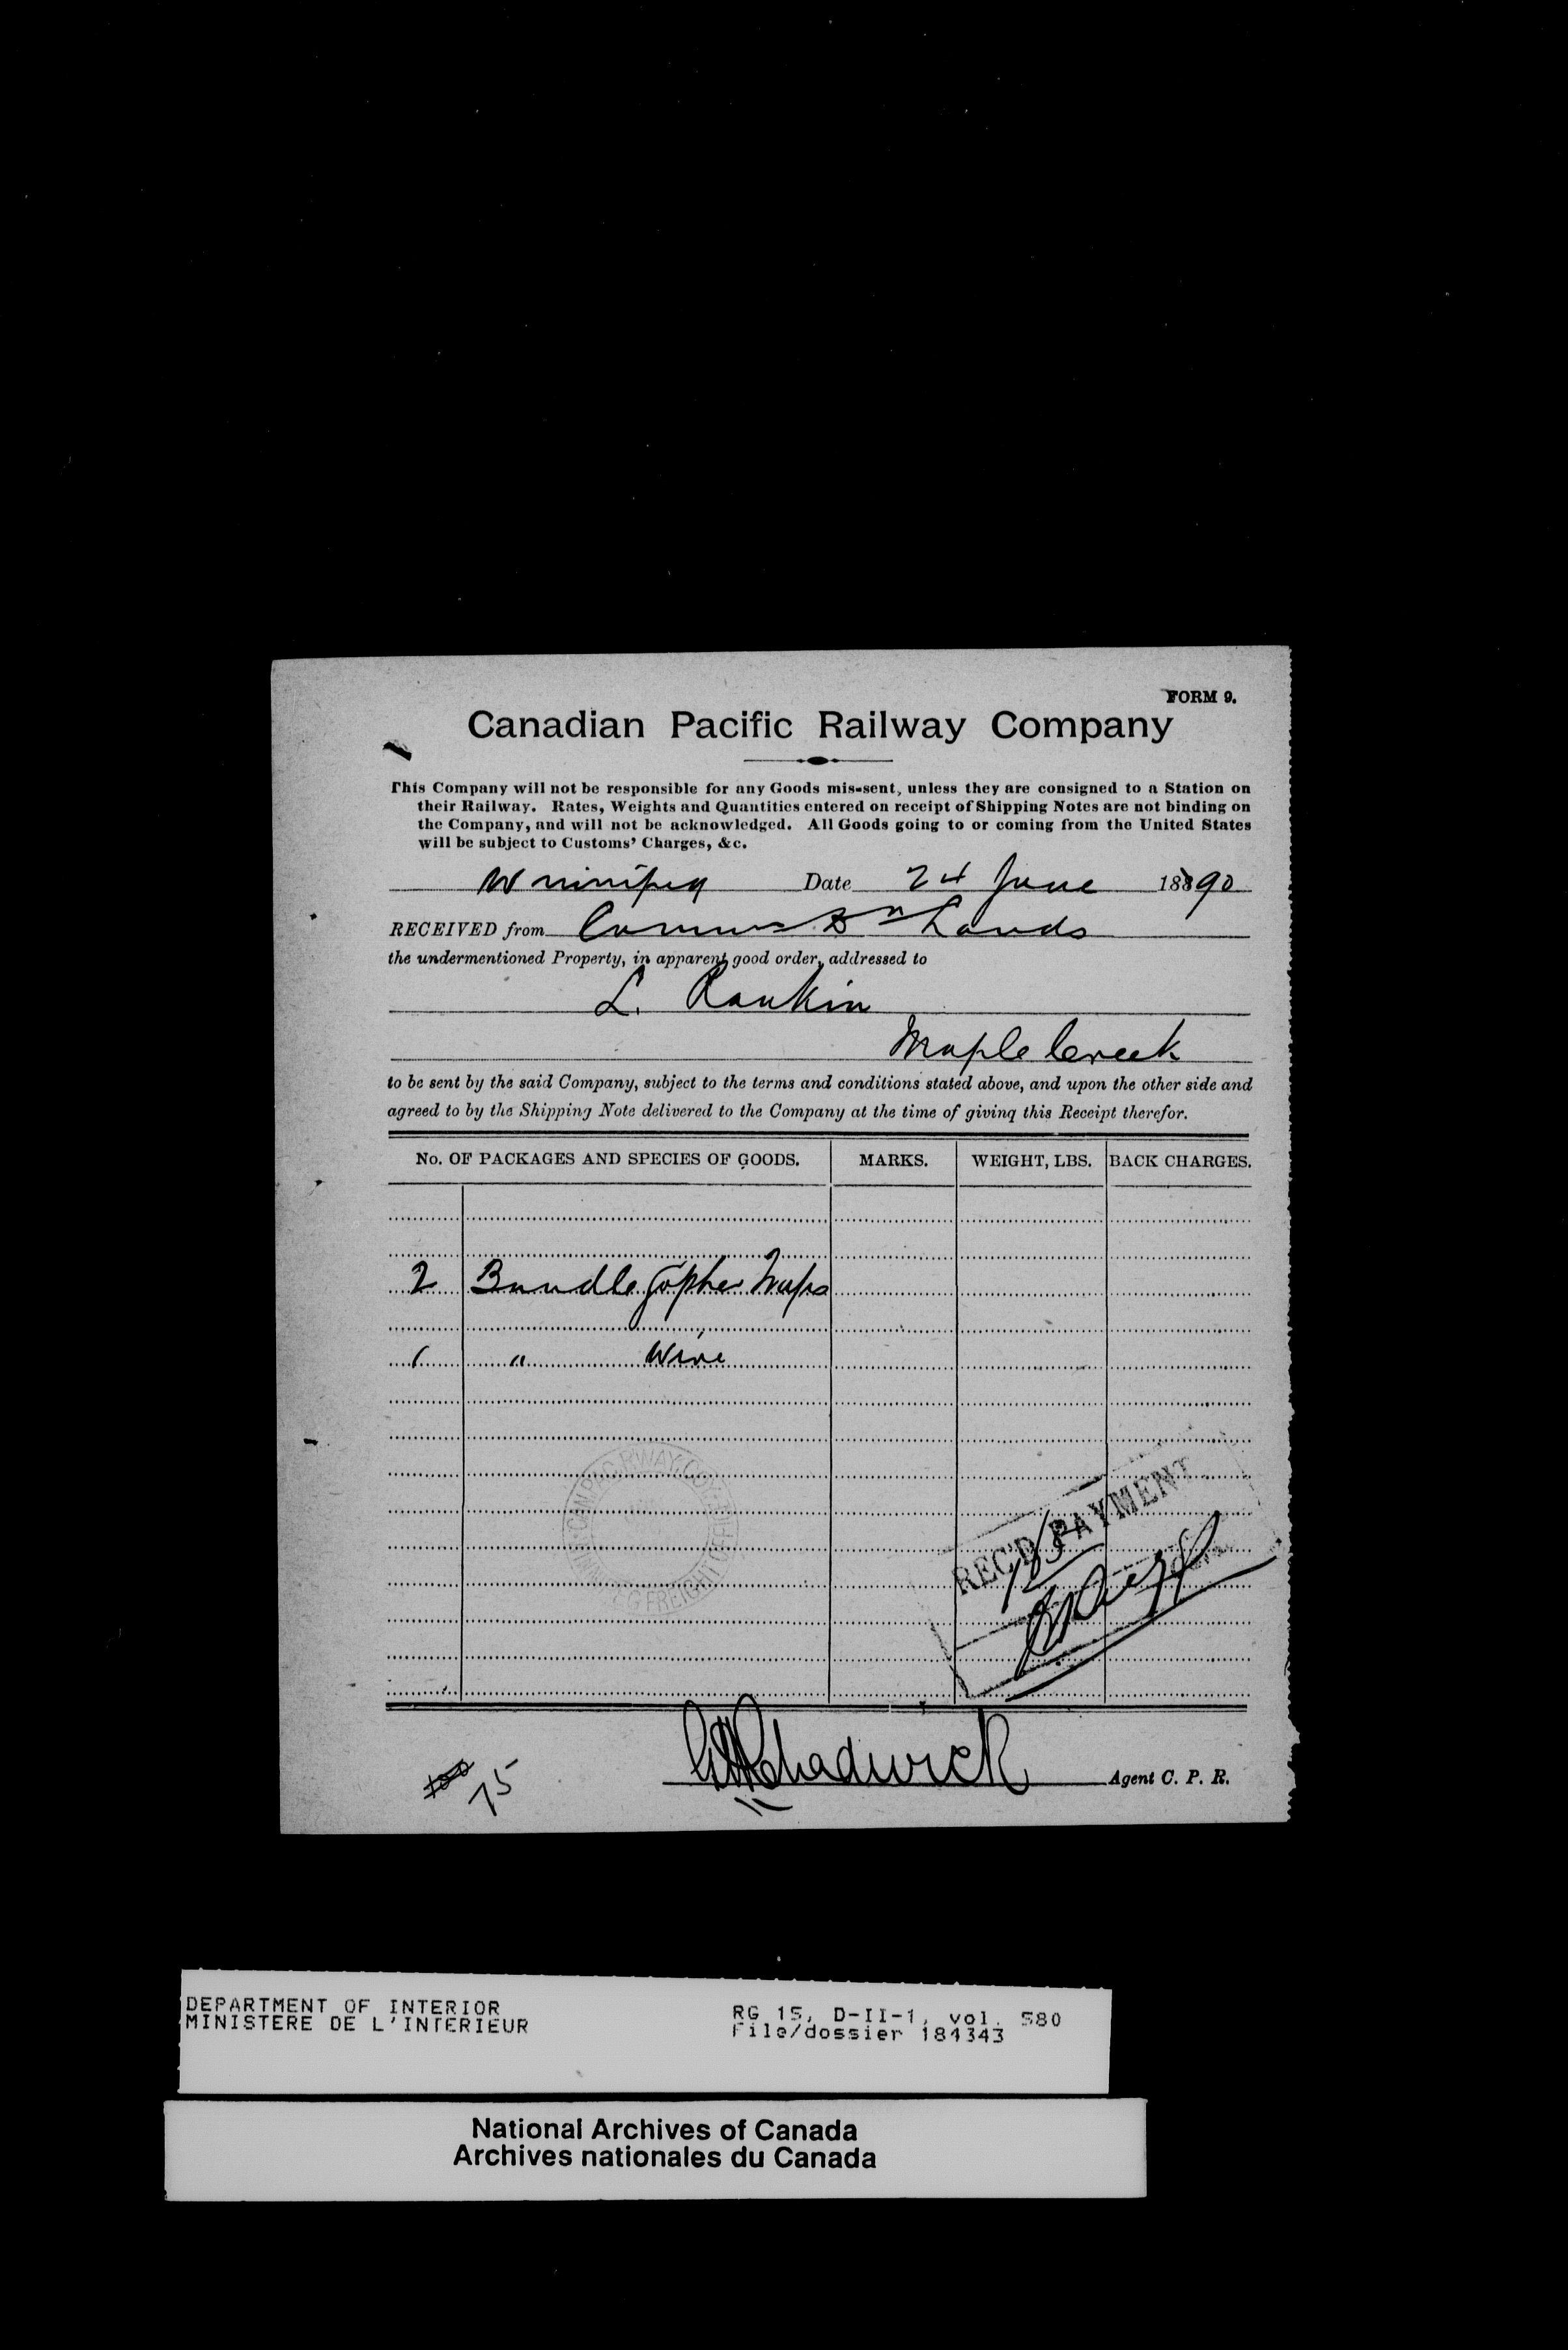 FORM 9.
Canadian Pacific Railway Company
This Company will not be responsible for any Goods mis-sent, unless they are consigned to a Station on
their Railway. Rates, Weights and Quantities entered on receipt of Shipping Notes are not binding on
the Company, and will not be acknowledged. All Goods going to or coming from the United States
will be subject to Customs' Charges, &c.
Winnipeg Date 24 June 1890
RECEIVED from Commr Dn Lands
the undermentioned Property, in apparent good order, addressed to
L. Rankin
Maple Creek
to be sent by the said Company, subject to the terms and conditions stated above, and upon the other side and
agreed to by the Shipping Note delivered to the Company at the time of giving this Receipt therefor.
No. OF PACKAGES AND SPECIES OF GOODS. MARKS. WEIGHT, LBS. BACK CHARGES.
2 Bundle Gopher Traps
1 " Wire
CAN. PAC. R'WAY. COY. WINNIPEG FREIGHT OFFICE
REC'D PAYMENT
Chadwick Agent C. P. R.
100 75
DEPARTMENT OF INTERIOR
MINISTERE DE L'INTERIEUR
RG 15, D-II-1, vol. 580
File/dossier 184343
National Archives of Canada
Archives nationales du Canada